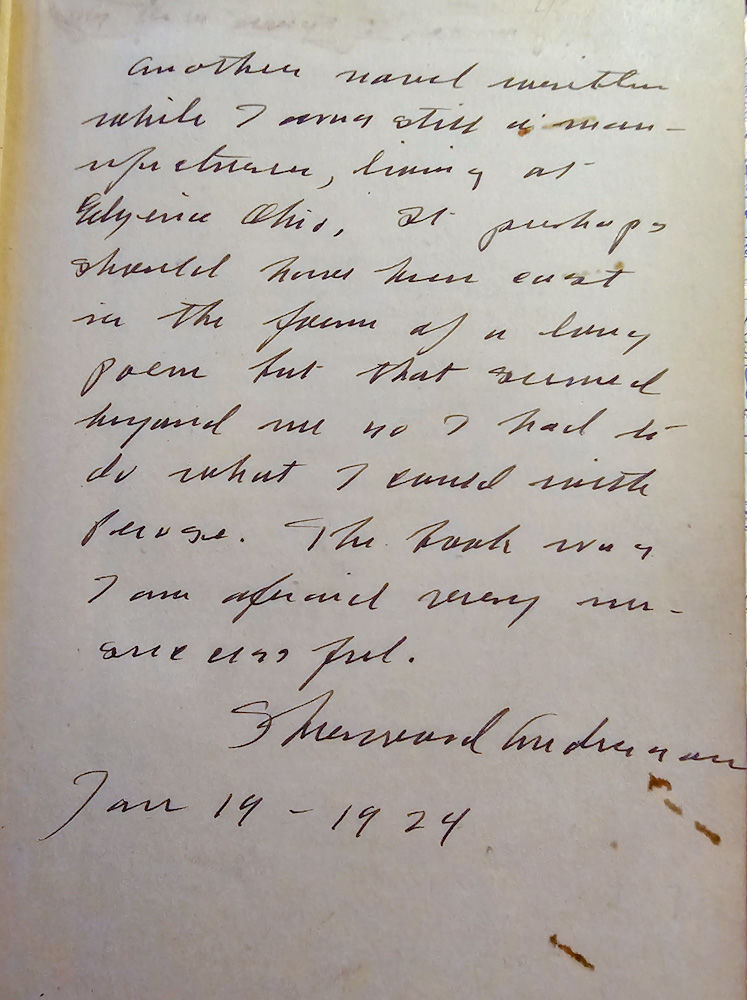 Another novel written
while I was still a man-
ufacturer, living at
Elyria Ohio, It perhaps
should have been cast
in the form of a long
poem but that seemed
beyond me so I had to
do what I could with
prose. The book was
I am afraid very un-
successful.
Sherwood Anderson
Jan 19 - 1924